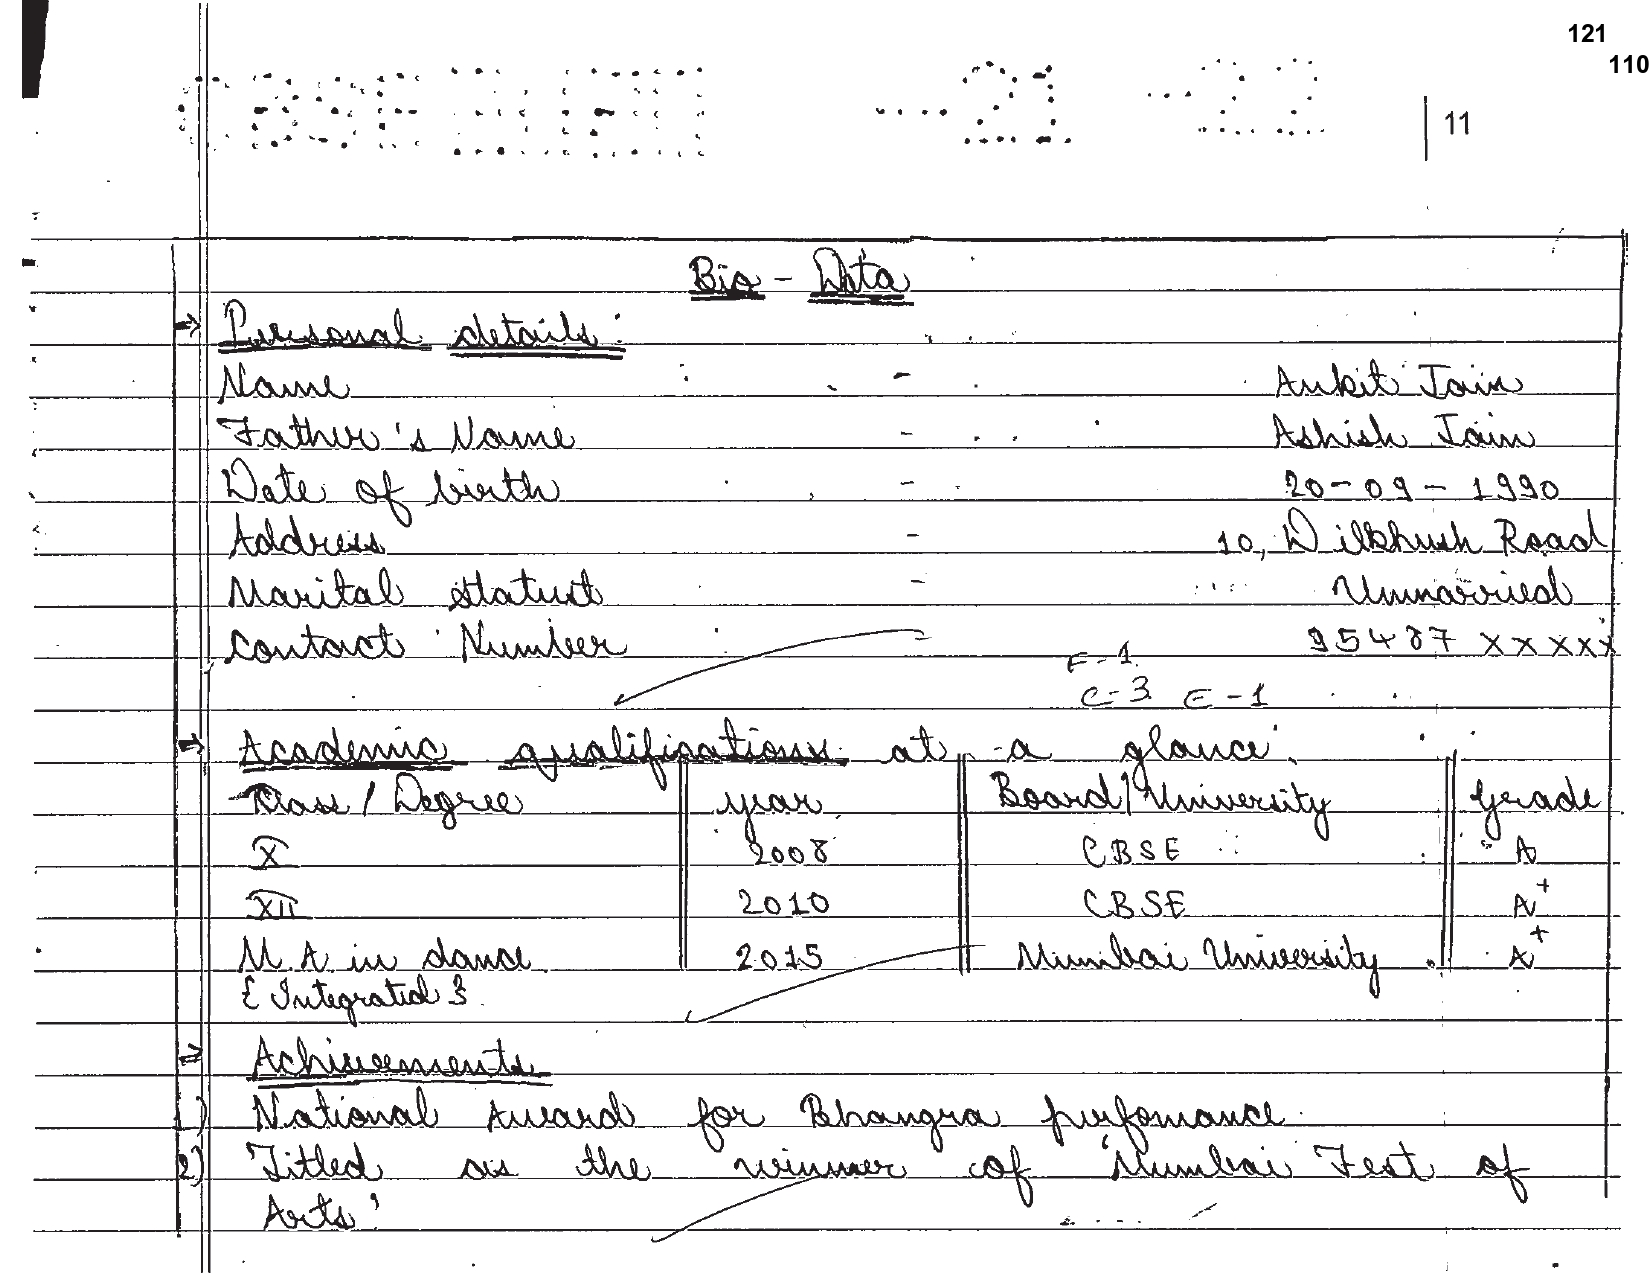 121
110
11
Bio - Data
→ Personal details:
Name - Ankit Jain
Father's Name - Ashish Jain
Date of birth - 20-09-1990
Address - 10, Dilkhush Road
Marital status - Unmarried
Contact Number - 95487 xxxxx
F-1
C-3 E-1
→ Academic qualifications at a glance:
Class / Degree year Board/University Grade
X 2008 CBSE A
XII 2010 CBSE A+
M.A in dance 2015 Mumbai University A+
{ Integrated }
→ Achievements
1) National Award for Bhangra perfomance.
2) Titled as the winner of 'Mumbai Fest of
Arts'